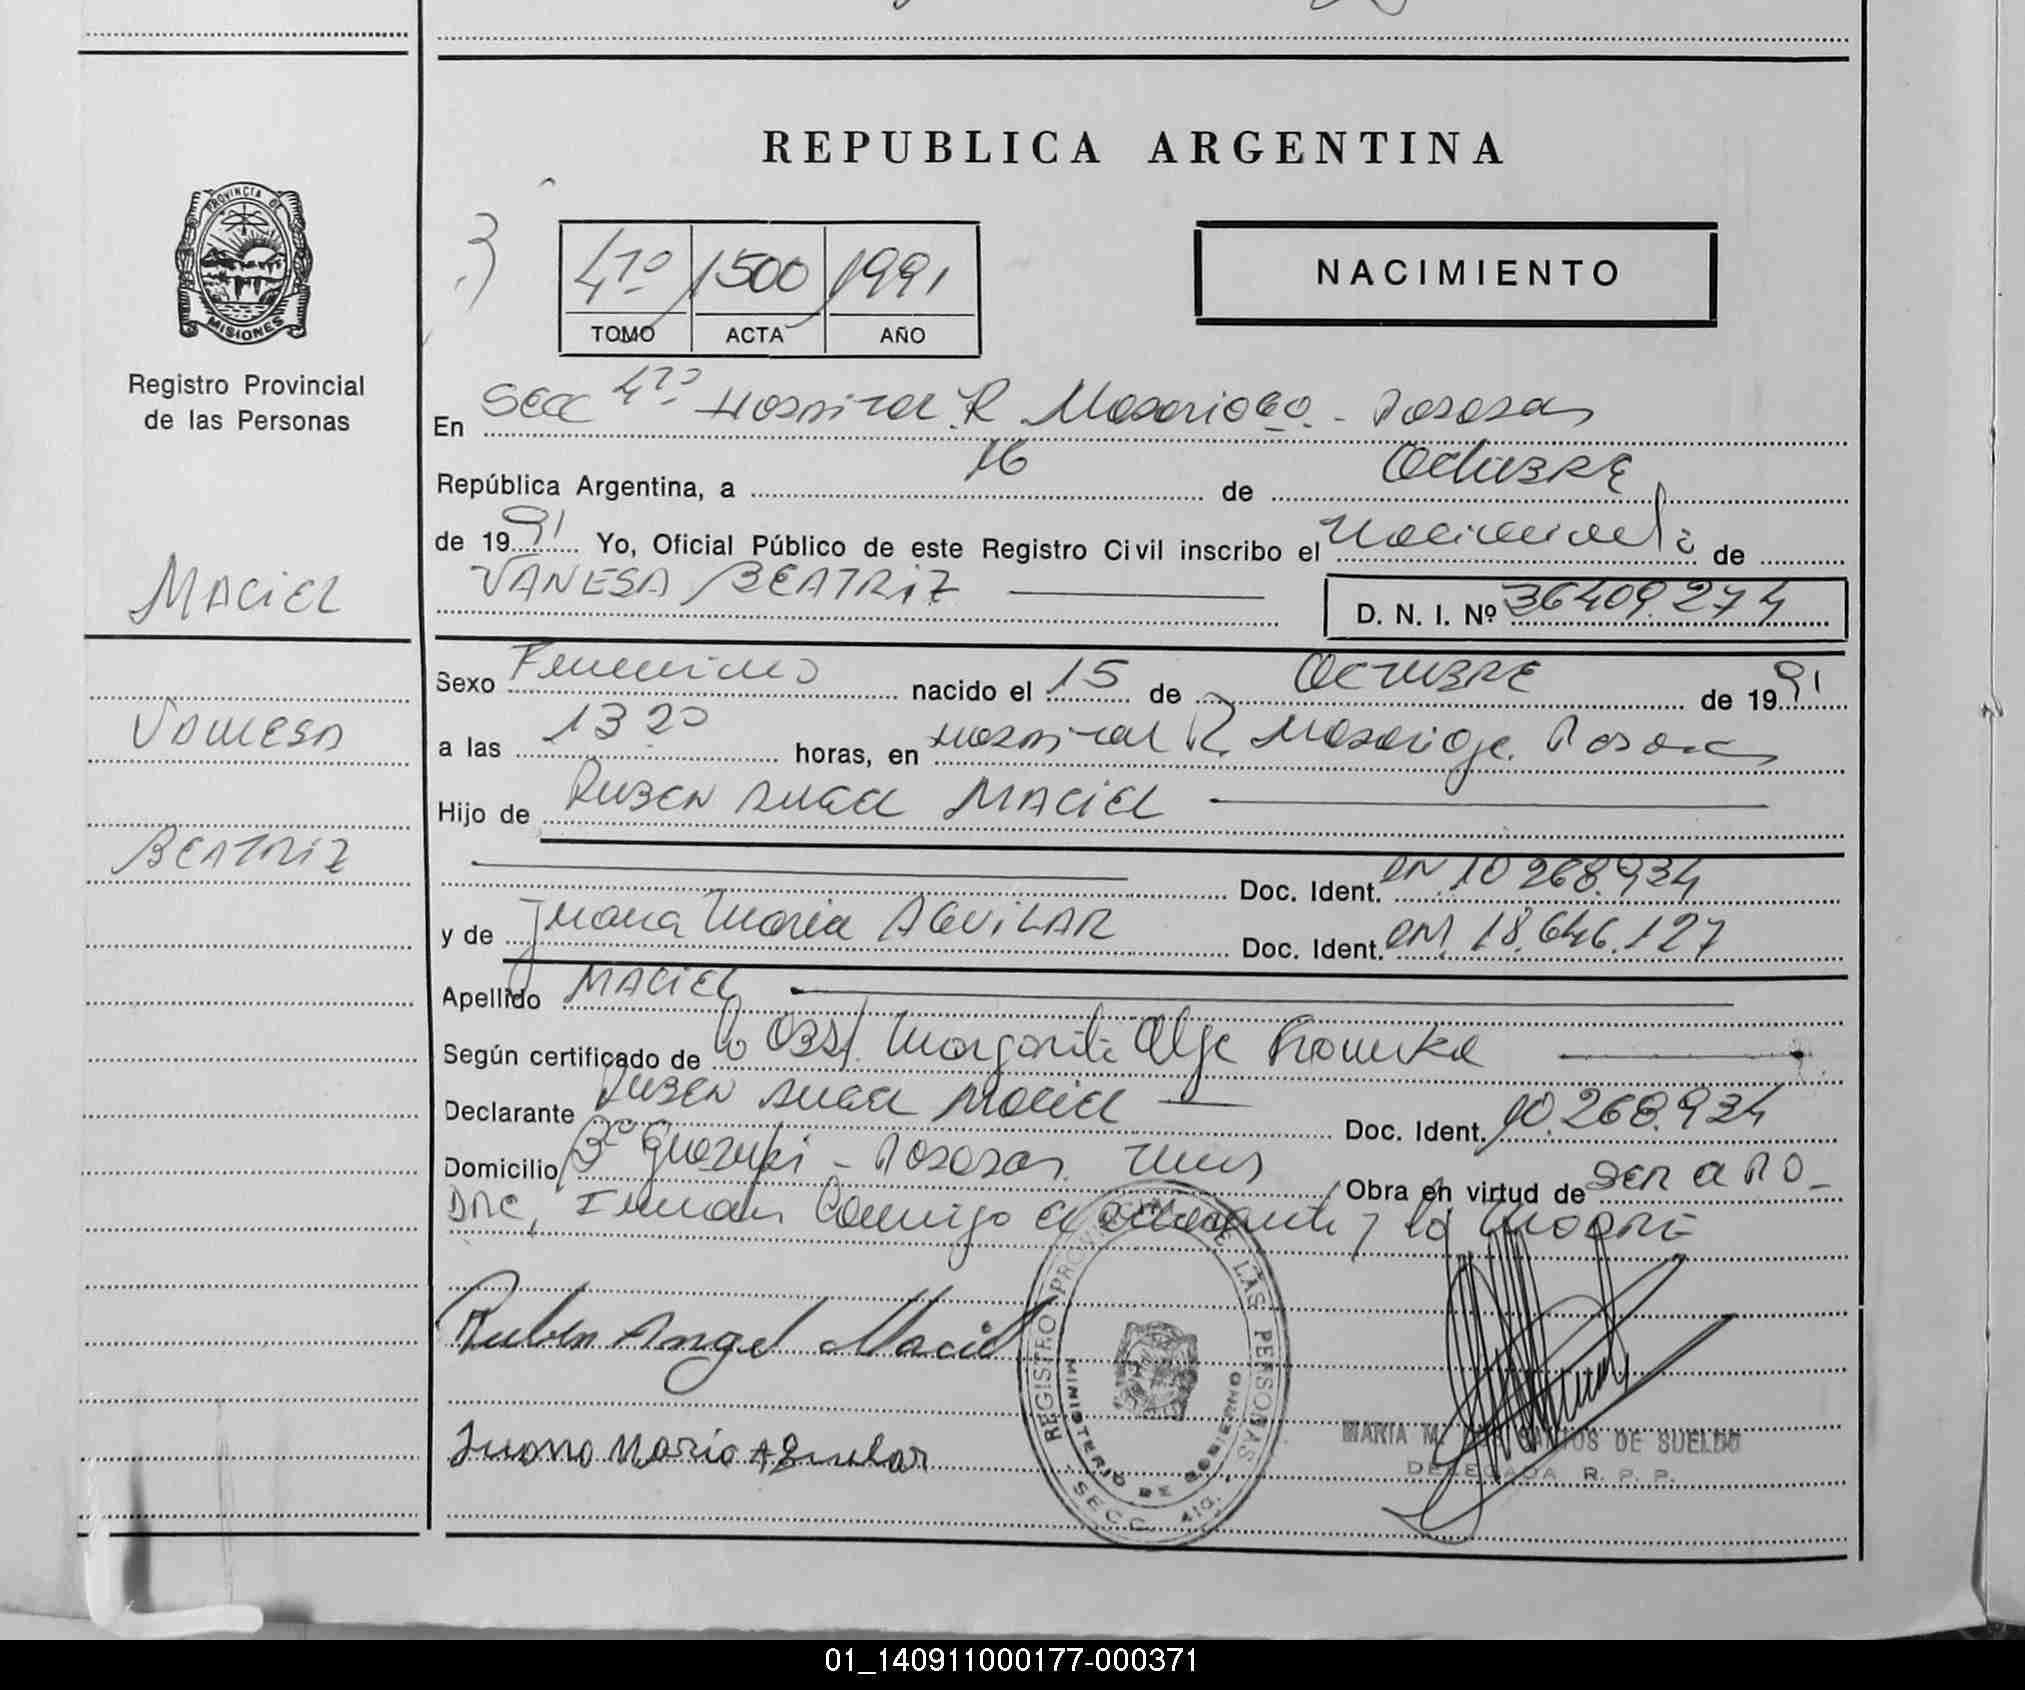 REPUBLICA ARGENTINA
PROVINCIA DE
MISIONES
Registro Provincial
de las Personas
4to 1500 1991
TOMO ACTA AÑO
NACIMIENTO
En Secc 4to Hospital R Madariaga - Posadas
República Argentina, a 16 de Octubre
de 1991 Yo, Oficial Público de este Registro Civil inscribo el Nacimiento de
VANESA BEATRIZ
D. N. I. Nº 36409.274
MACIEL
VANESA
BEATRIZ
Sexo Femenino nacido el 15 de OCTUBRE de 1991
a las 13 20 horas, en Hospital R. Madariaga. Posadas
Hijo de RUBEN ANGEL MACIEL
Doc. Ident. DN 10 268.934
y de Juana Maria AGUILAR Doc. Ident. DNI 18.646.127
Apellido MACIEL
Según certificado de la Obst. Margarita Olga
Declarante RUBEN ANGEL MACIEL Doc. Ident. 10.268.934
Domicilio Bº - Posadas Mnes Obra en virtud de SER EL PA-
DRE, Firman Conmigo el declarante y la MADRE
Ruben Angel Maciel
Juana Maria Aguilar
REGISTRO PROVINCIAL DE LAS PERSONAS
MINISTERIO DE GOBIERNO
SECC. 4ta.
MARIA M. DE SUELDO
DELEGADA R. P. P.
01_140911000177-000371